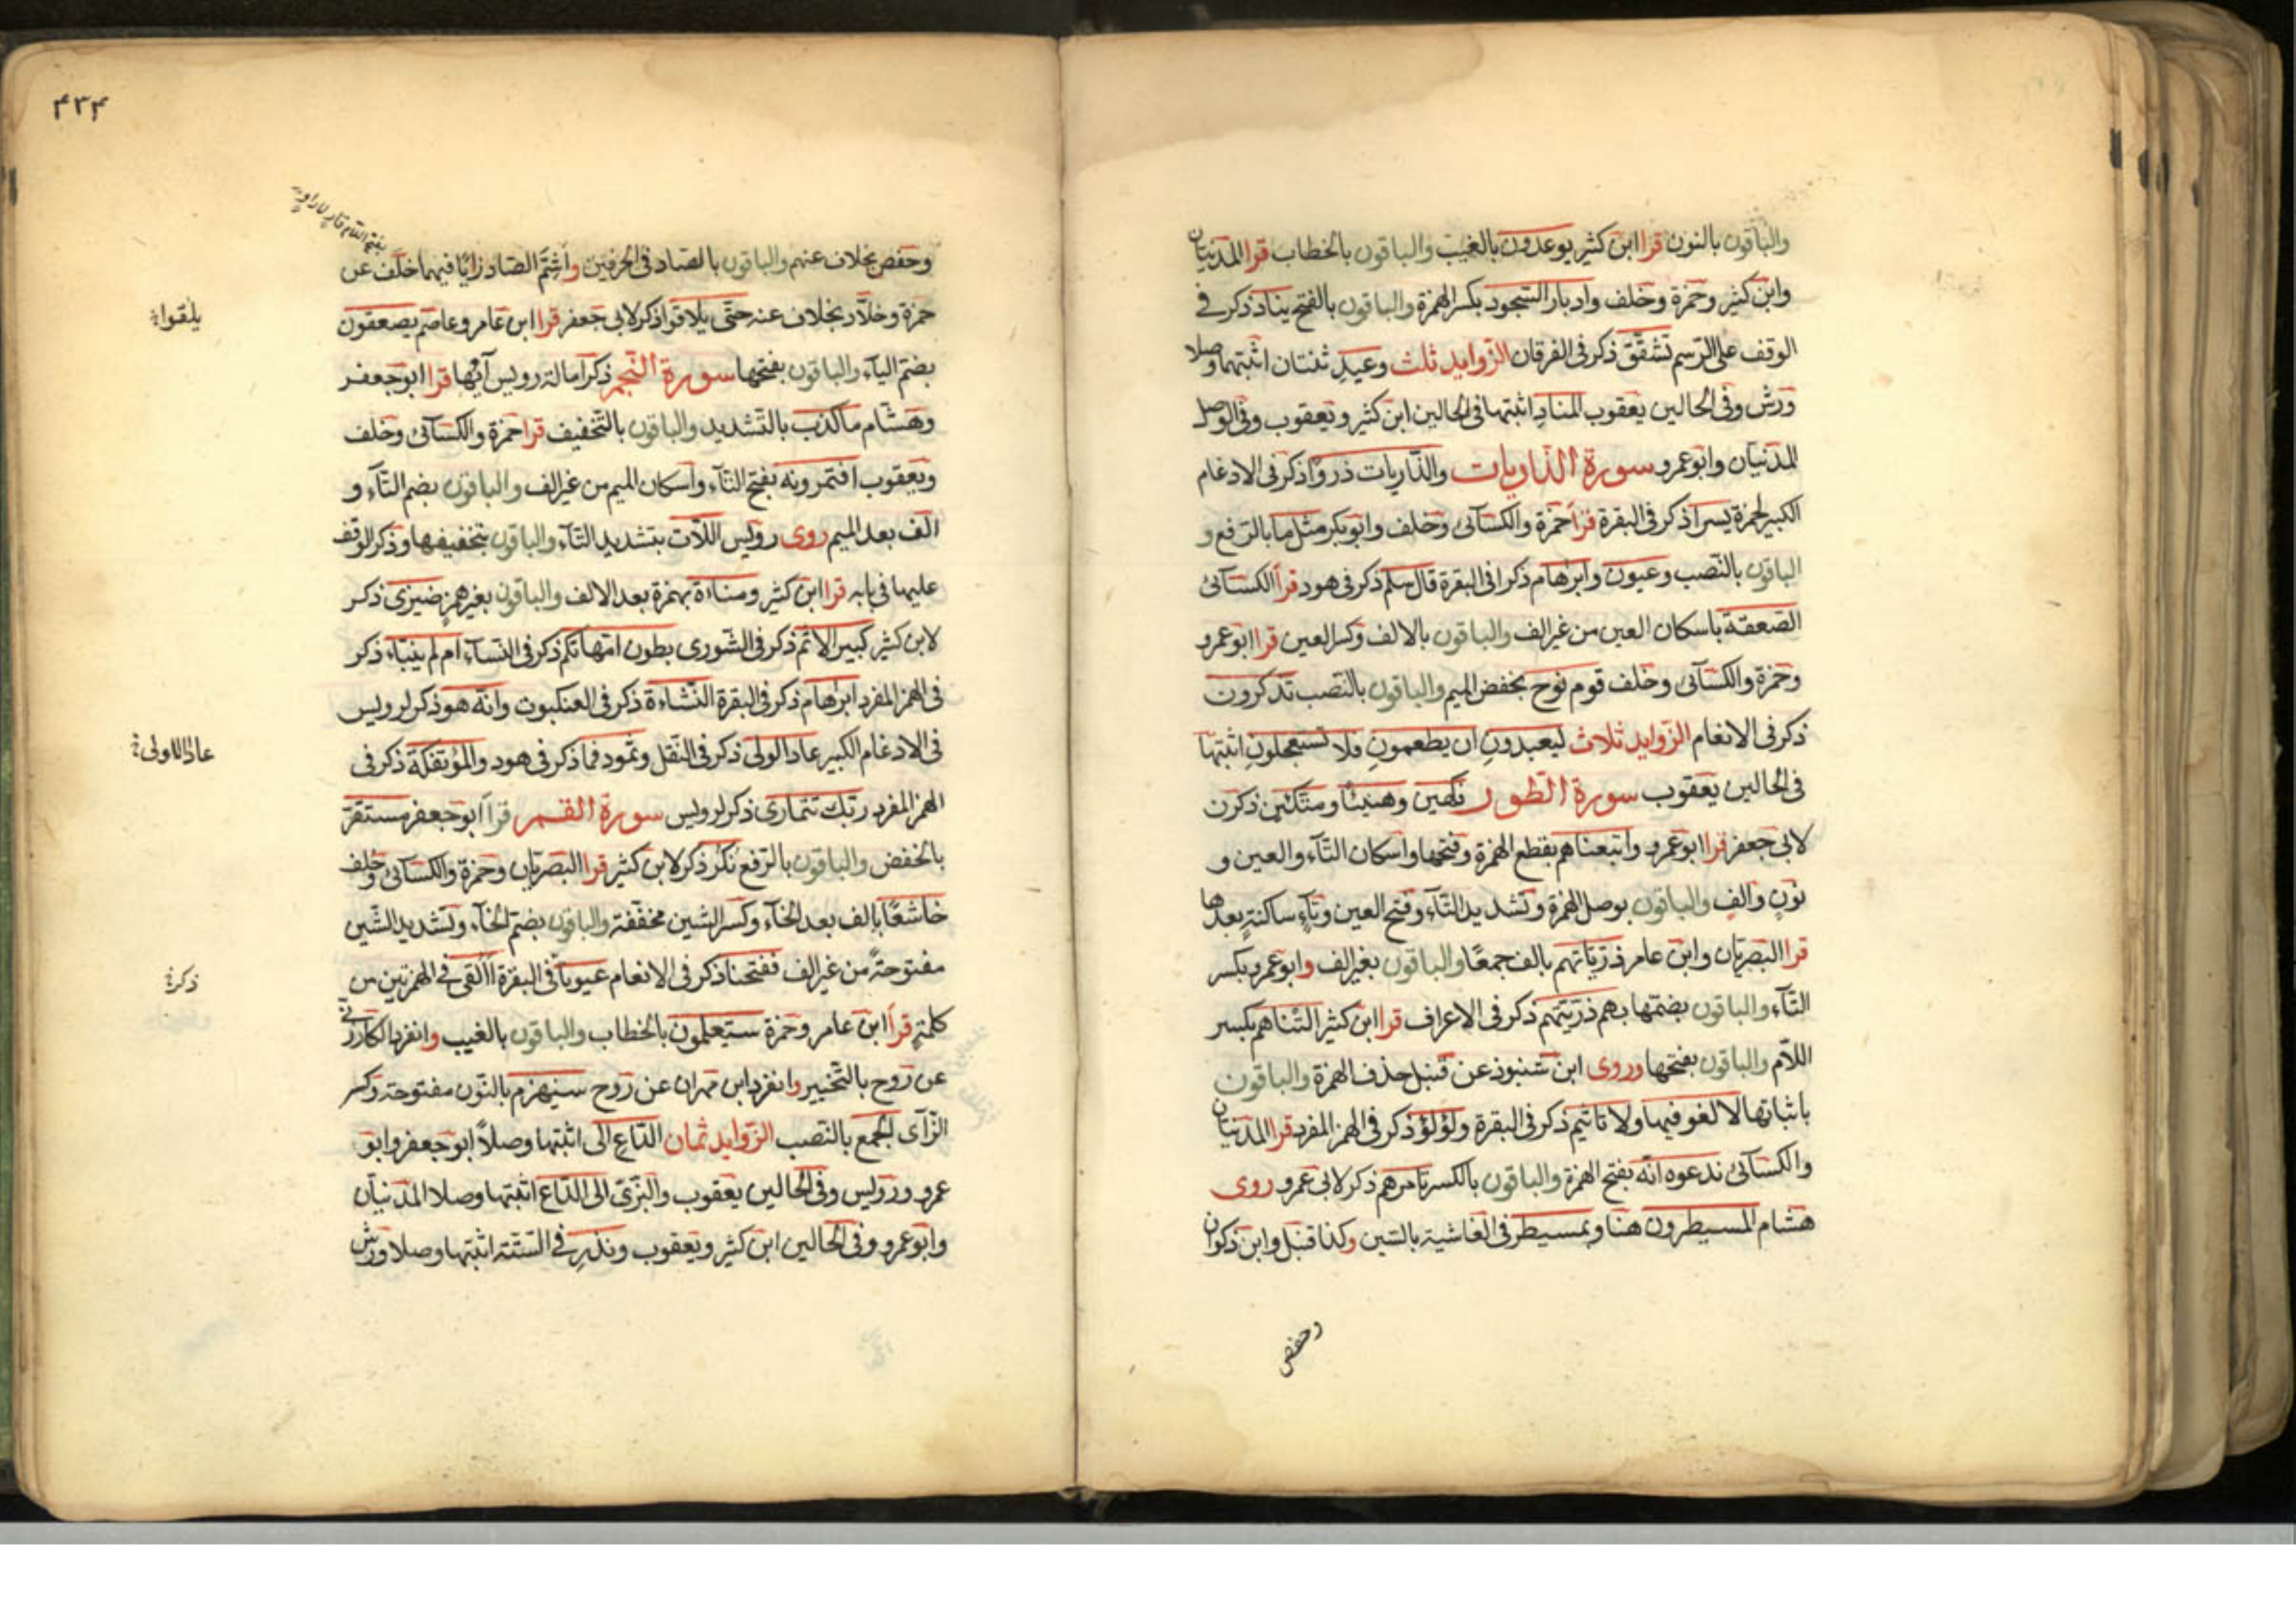 والباقون بالنون قرا ابن كثير يوعدون بالغيب والباقون بالخطاب قرا المدنيان
وابن كثير وحمزة وخلف وادبار السجود بكسر الهمزة والباقون بالفتح يناد ذكر في
الوقف على الرسم تشقق ذكر في الفرقان الزوايد ثلث وعيد ثنتان اثبتهما وصلا
ورش وفي الحالين يعقوب المناد اثبتها في الحالين ابن كثير ويعقوب وفي الوصل
المدنيان وابوعمرو سورة الذاريات والذاريات ذروا ذكر في الادغام
الكبير لحمزة يسرا ذكر في البقرة قرا حمزة والكسآئى وخلف وابوبكر مثل ما بالرفع و
الباقون بالنصب وعيون وابرهام ذكرا في البقرة قال سلم ذكر في هود قرا الكسآئى
الصعقة باسكان العين من غير الف والباقون بالالف وكسر العين قرا ابوعمرو
وحمزة والكسآئى وخلف قوم نوح بخفض الميم والباقون بالنصب تذكرون
ذكر في الانعام الزوايد ثلاث ليعبدون ان يطعمون فلا تستعجلون اثبتها
في الحالين يعقوب سورة الطور فكهين وهنيئا ومتكئين ذكرن
لابى جعفر قرا ابوعمرو واتبعناهم بقطع الهمزة وفتحها واسكان التآء والعين و
نون والف والباقون بوصل الهمزة وتشديد التآء وفتح العين وتآء ساكنة بعدها
قرا البصريان وابن عامر ذرياتهم بالف جمعا والباقون بغير الف وابوعمرو بكسر
التآء والباقون بضمها بهم ذريتهم ذكر في الاعراف قرا ابن كثير التناهم بكسر
اللام والباقون بفتحها وروى ابن شنبوذ عن قنبل حذف الهمزة والباقون
باثباتها لا لغو فيها ولا تاثيم ذكر في البقرة ولؤلؤ ذكر في الهمز المفرد قرا المدنيان
والكسآئى ندعوه انه بفتح الهمزة والباقون بالكسر تامرهم ذكر لابى عمرو روى
هشام المسيطرون هنا وبمسيطر في الغاشية بالسين وكذا قنبل وابن ذكوان
وحفص
۴۳۴
وحفص بخلاف عنهم والباقون بالصاد في الحرفين واشم الصاد زايا فيهما خلف عن
حمزة وخلاد بخلاف عنه حتى يلاقوا ذكر لابى جعفر قرا ابن عامر وعاصم يصعقون
يلقوا
بضم اليآء والباقون بفتحها سورة النجم ذكر امالة رويس آيها قرا ابوجعفر
وهشام ما كذب بالتشديد والباقون بالتخفيف قرا حمزة والكسآئى وخلف
ويعقوب افتمرونه بفتح التآء واسكان الميم من غير الف والباقون بضم التآء و
الف بعد الميم روى رويس اللات بتشديد التآء والباقون بتخفيفها وذكر الوقف
عليها في بابه قرا ابن كثير ومناءة بهمزة بعد الالف والباقون بغير همز ضيزى ذكر
لابن كثير كبير الاثم ذكر في الشورى بطون امهاتكم ذكر في النسآء ام لم ينبأ ذكر
في الهمز المفرد ابرهام ذكر في البقرة النشاءة ذكر في العنكبوت وانه هو ذكر لرويس
في الادغام الكبير عاد الولى ذكر في النقل وثمود فما ذكر في هود والمؤتفكة ذكر في
عادا الاولى
الهمز المفرد ربك تتمارى ذكر لرويس سورة القمر قرا ابوجعفر مستقر
بالخفض والباقون بالرفع نكر ذكر لابن كثير قرا البصريان وحمزة والكسآئى وخلف
خاشعا بالف بعد الخآء وكسر الشين مخففة والباقون بضم الخآء وتشديد الشين
مفتوحة من غير الف ففتحنا ذكر في الانعام عيونا في البقرة أألقى في الهمزتين من
ذكر
كلمة قرا ابن عامر وحمزة ستعلمون بالخطاب والباقون بالغيب وانفرد الكارزينى
عن روح بالتخيير وانفرد ابن مهران عن روح سنهزم بالنون مفتوحة وكسر
الزآى الجمع بالنصب الزوايد ثمان الداع الى اثبتها وصلا ابوجعفر وابو
عمرو ورويس وفي الحالين يعقوب والبزى الى الداع اثبتها وصلا المدنيان
وابوعمرو وفي الحالين ابن كثير ويعقوب ونذر في الستة اثبتها وصلا ورش